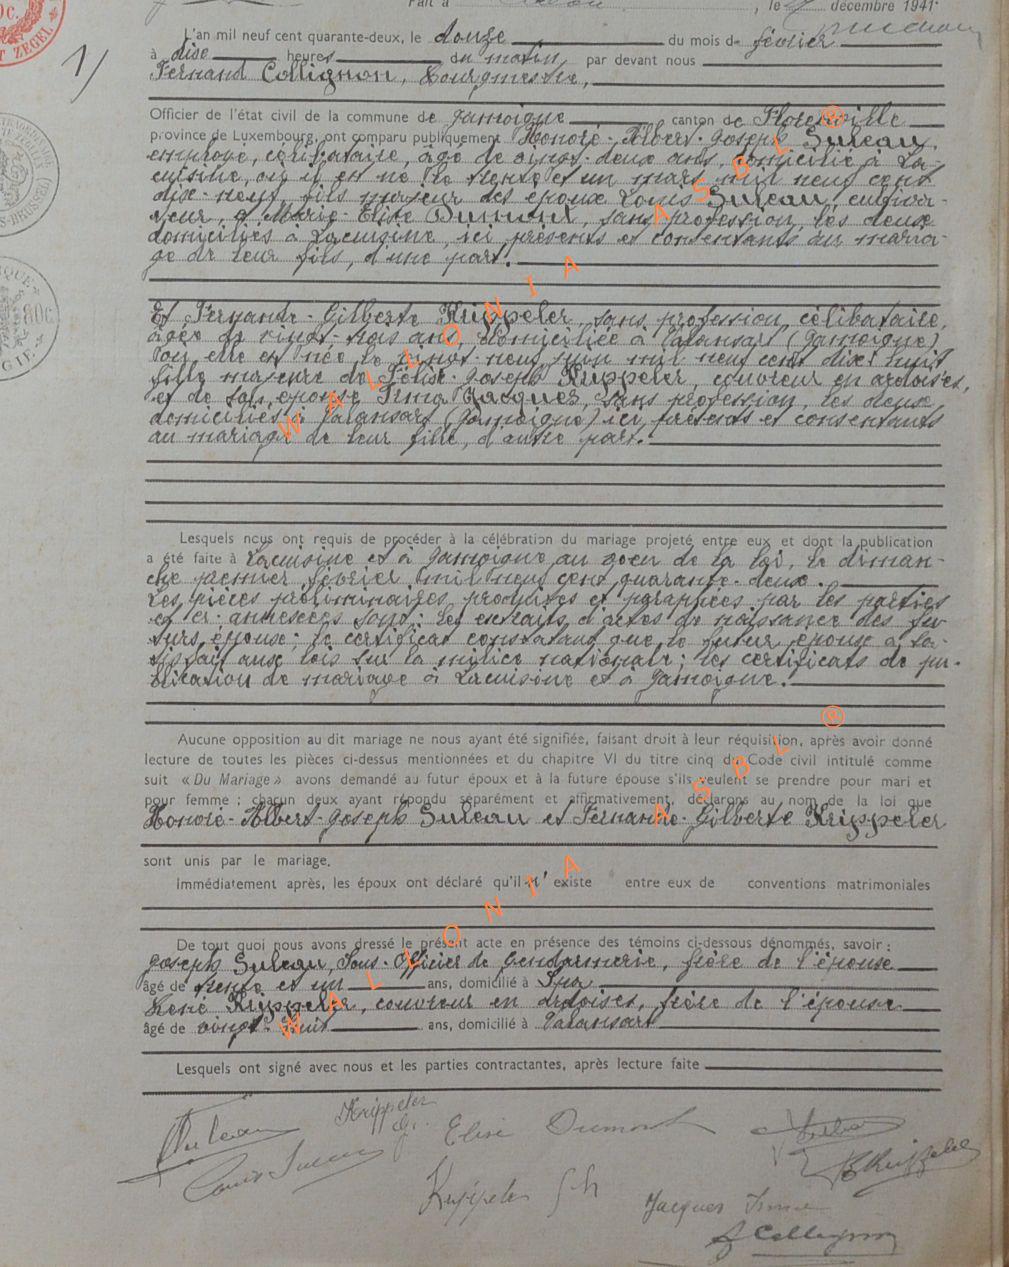 Fait à , le décembre 1941.
1/
L'an mil neuf cent quarante-deux, le douze du mois de février
à dise heures du matin, par devant nous
Fernand Collignon, bourgmestre,
Officier de l'état civil de la commune de Jamoigne canton de Florenville
province de Luxembourg, ont comparu publiquement Honoré-Albert-Joseph Suleau,
employé, célibataire, âgé de vingt-deux ans, domicilié à La-
cuisine, où il est né le trente et un mars mil neuf cent
dix-neuf, fils majeur des époux Louis Suleau, cultiva-
teur, & Marie-Elise Dumont, sans profession, les deux
domiciliés à Lacuisine, ici présents et consentants au maria-
ge de leur fils, d'une part.
Et Fernande-Gilberte Krippeler, sans profession, célibataire,
âgée de vingt-trois ans, domiciliée à Valansart (Jamoigne)
où elle est née le vingt-neuf juin mil neuf cent dix-huit
fille majeure de Félix-Joseph Krippeler, couvreur en ardoises,
et de son épouse Irma Jacques, sans profession, les deux
domiciliés à Valansart (Jamoigne) ici présents et consentants
au mariage de leur fille, d'autre part.
Lesquels nous ont requis de procéder à la célébration du mariage projeté entre eux et dont la publication
a été faite à Lacuisine et à Jamoigne au voeu de la loi, le diman-
che premier février mil neuf cent quarante-deux.
Les pièces préliminaires produites et paraphées par les parties
et ci-annexées sont: les extraits d'actes de naissance des fu-
turs époux; le certificat constatant que le futur époux a sa-
tisfait aux lois sur la milice nationale; les certificats de pu-
blication de mariage à Lacuisine et à Jamoigne.
Aucune opposition au dit mariage ne nous ayant été signifiée, faisant droit à leur réquisition, après avoir donné
lecture de toutes les pièces ci-dessus mentionnées et du chapitre VI du titre cinq du Code civil intitulé comme
suit « Du Mariage » avons demandé au futur époux et à la future épouse s'ils veulent se prendre pour mari et
pour femme : chacun deux ayant répondu séparément et affirmativement, déclarons au nom de la loi que
Honoré-Albert-Joseph Suleau et Fernande-Gilberte Krippeler
sont unis par le mariage.
Immédiatement après, les époux ont déclaré qu'il n'existe entre eux de conventions matrimoniales
De tout quoi nous avons dressé le présent acte en présence des témoins ci-dessous dénommés, savoir :
Joseph Suleau, Sous-Officier de Gendarmerie, frère de l'époux
âgé de trente et un ans, domicilié à Spa
René Krippeler, couvreur en ardoises, frère de l'épouse
âgé de vingt-huit ans, domicilié à Valansart
Lesquels ont signé avec nous et les parties contractantes, après lecture faite
Suleau Krippeler g. Elise Dumont
Louis Suleau R Krippeler
Krippeler f h Jacques Irma
F Collignon
WALLONIA ASBL ®
WALLONIA ASBL ®